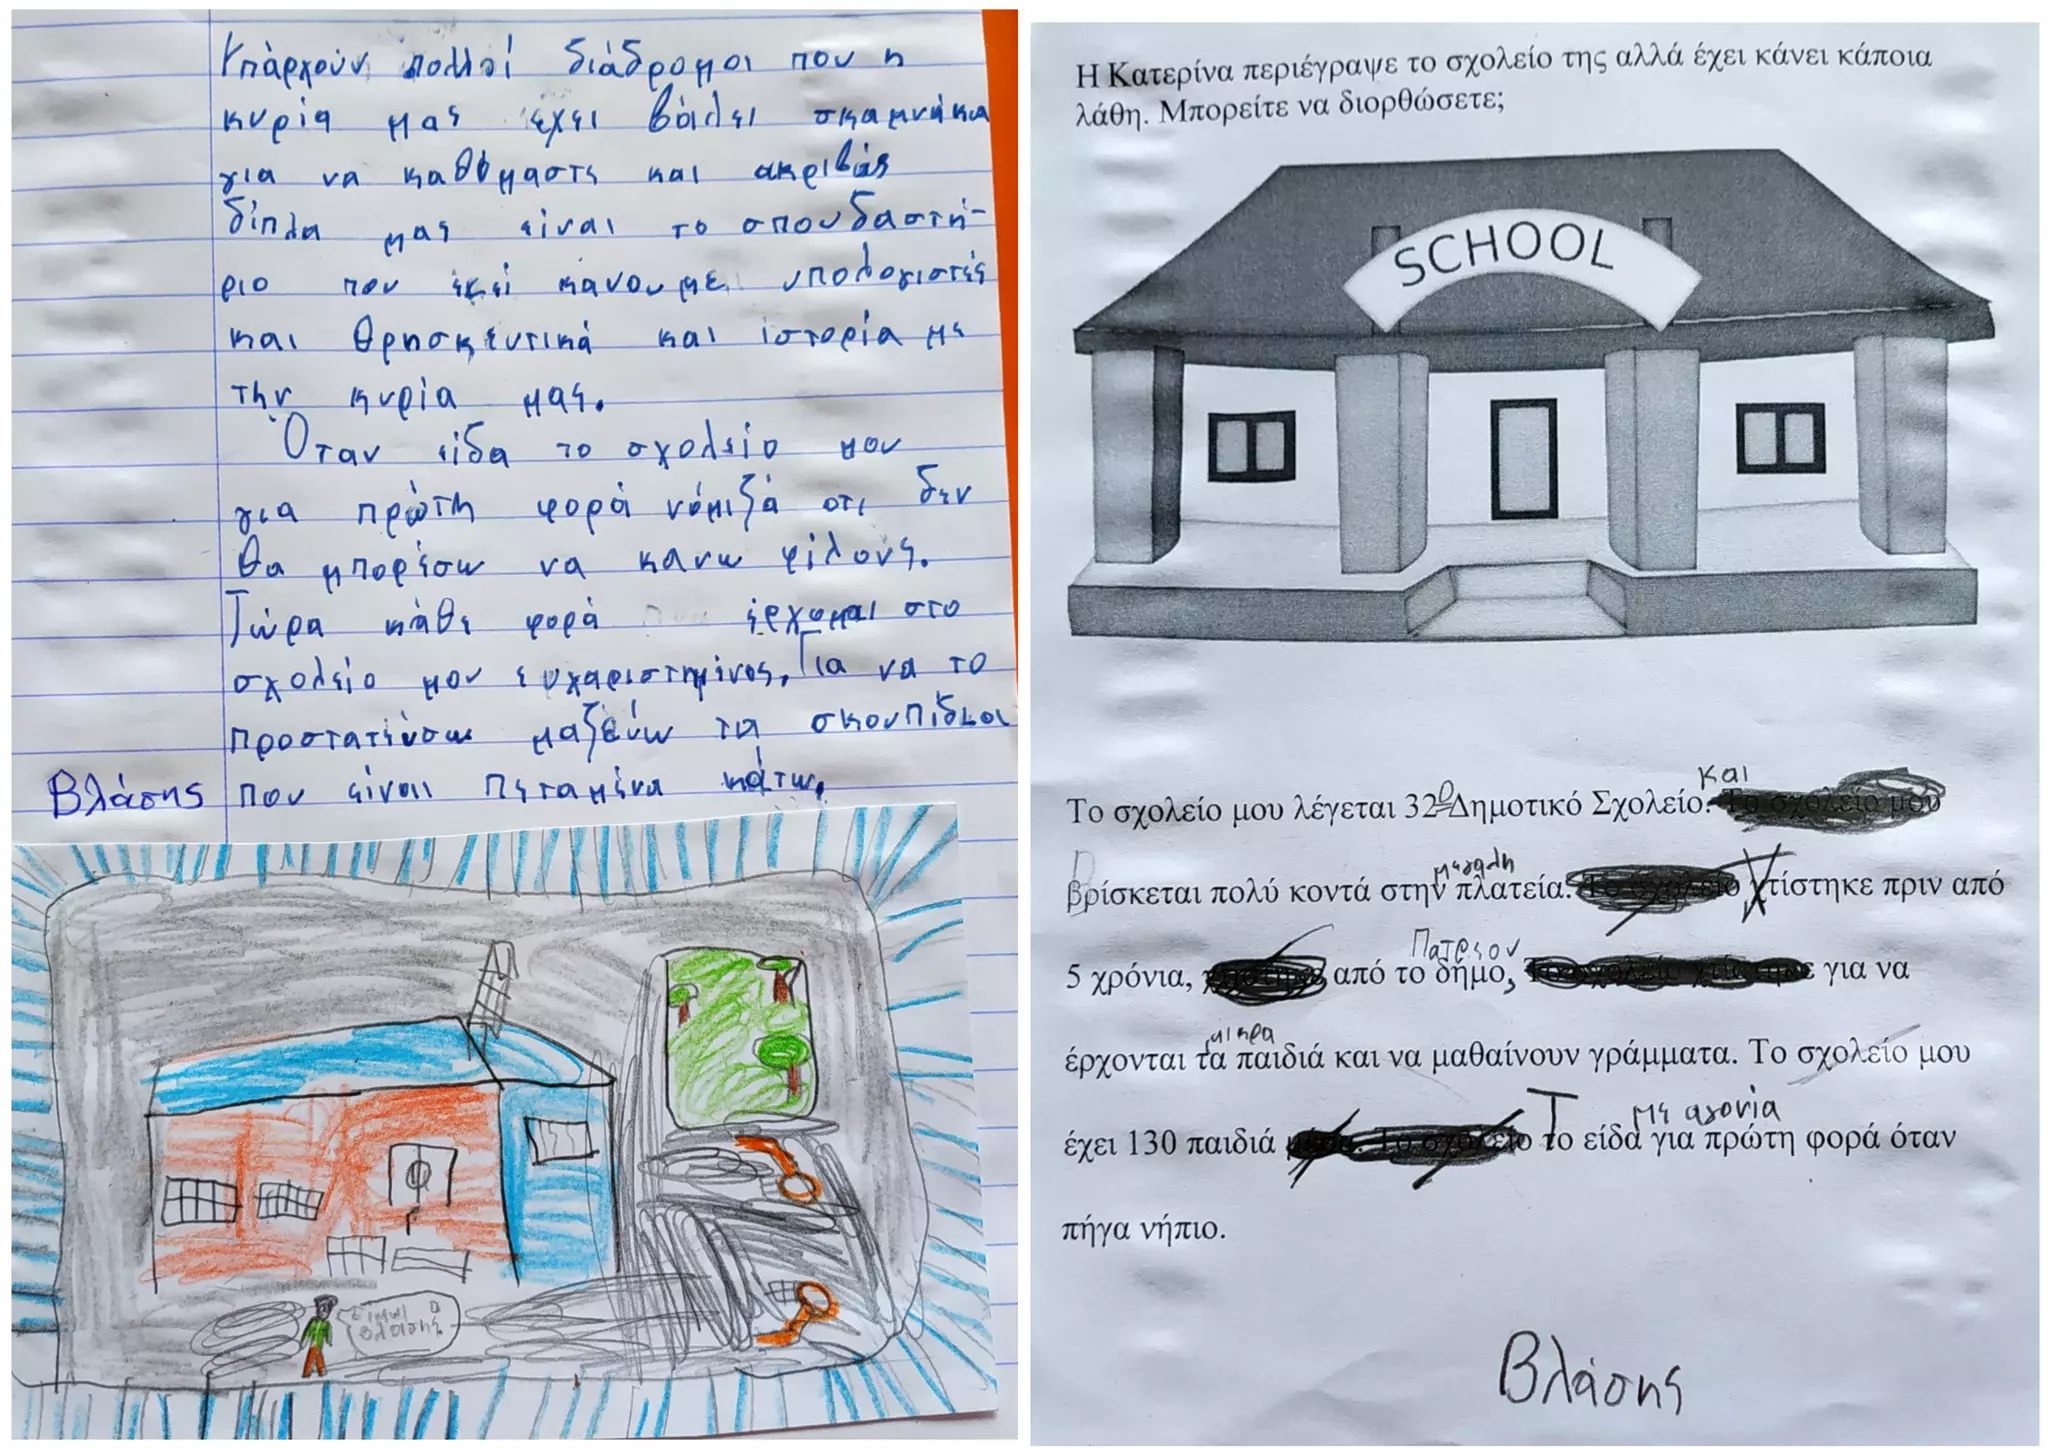 Υπάρχουν πολλοί διάδρομοι που η
κυρία μας έχει βάλει σκαμνάκια
για να καθόμαστε και ακριβώς
δίπλα μας είναι το σπουδαστή-
ριο που εκεί κανουμε υπολογιστές
και θρησκευτικά και ιστορία με
την κυρία μας.
Όταν είδα το σχολείο μου
για πρώτη φορά νόμιζά οτι δεν
θα μπορέσω να κανω φίλους.
Τώρα κάθε φορά έρχομαι στο
σχολείο μου ευχαριστημένος. Για να το
προστατεύσω μαζεύω τα σκουπίδια
Βλάσης που είναι πεταμένα κάτω.
Είμαι ο
Βλάσης
Η Κατερίνα περιέγραψε το σχολείο της αλλά έχει κάνει κάποια
λάθη. Μπορείτε να διορθώσετε;
SCHOOL
και
Το σχολείο μου λέγεται 32ο Δημοτικό Σχολείο. Το σχολείο μου
μεγαλη
βρίσκεται πολύ κοντά στην πλατεία. Το σχολείο χτίστηκε πριν από
Πατρεον
5 χρόνια, χτίστηκε από το δήμο, Το σχολείο χτίστηκε για να
μικρα
έρχονται τα παιδιά και να μαθαίνουν γράμματα. Το σχολείο μου
Τ με αγονία
έχει 130 παιδιά μέσα. Το σχολείο το είδα για πρώτη φορά όταν
πήγα νήπιο.
Βλάσης